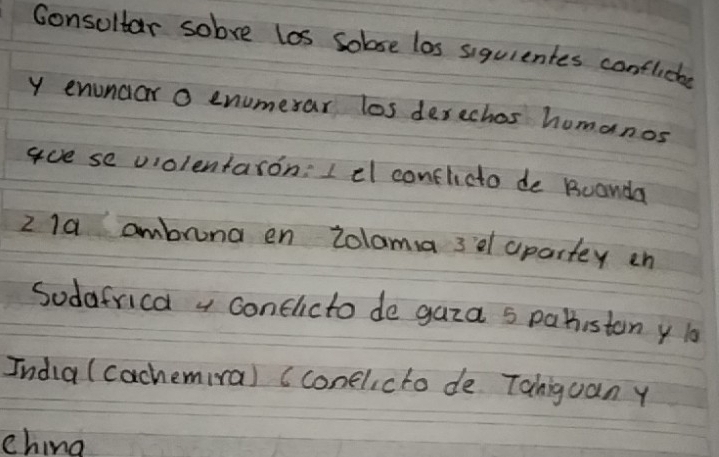 Consultar sobre los sobre los siguientes conflictos
y enunciar o enumerar los derechos humanos
que se violentarón: 1 el conflicto de Ruanda
2 la ambruna en zolamia 3 el apartey en
Sudafrica 4 conflicto de gaza 5 pakistan y la
India (cachemira) 6 conflicto de Taniguan y
china